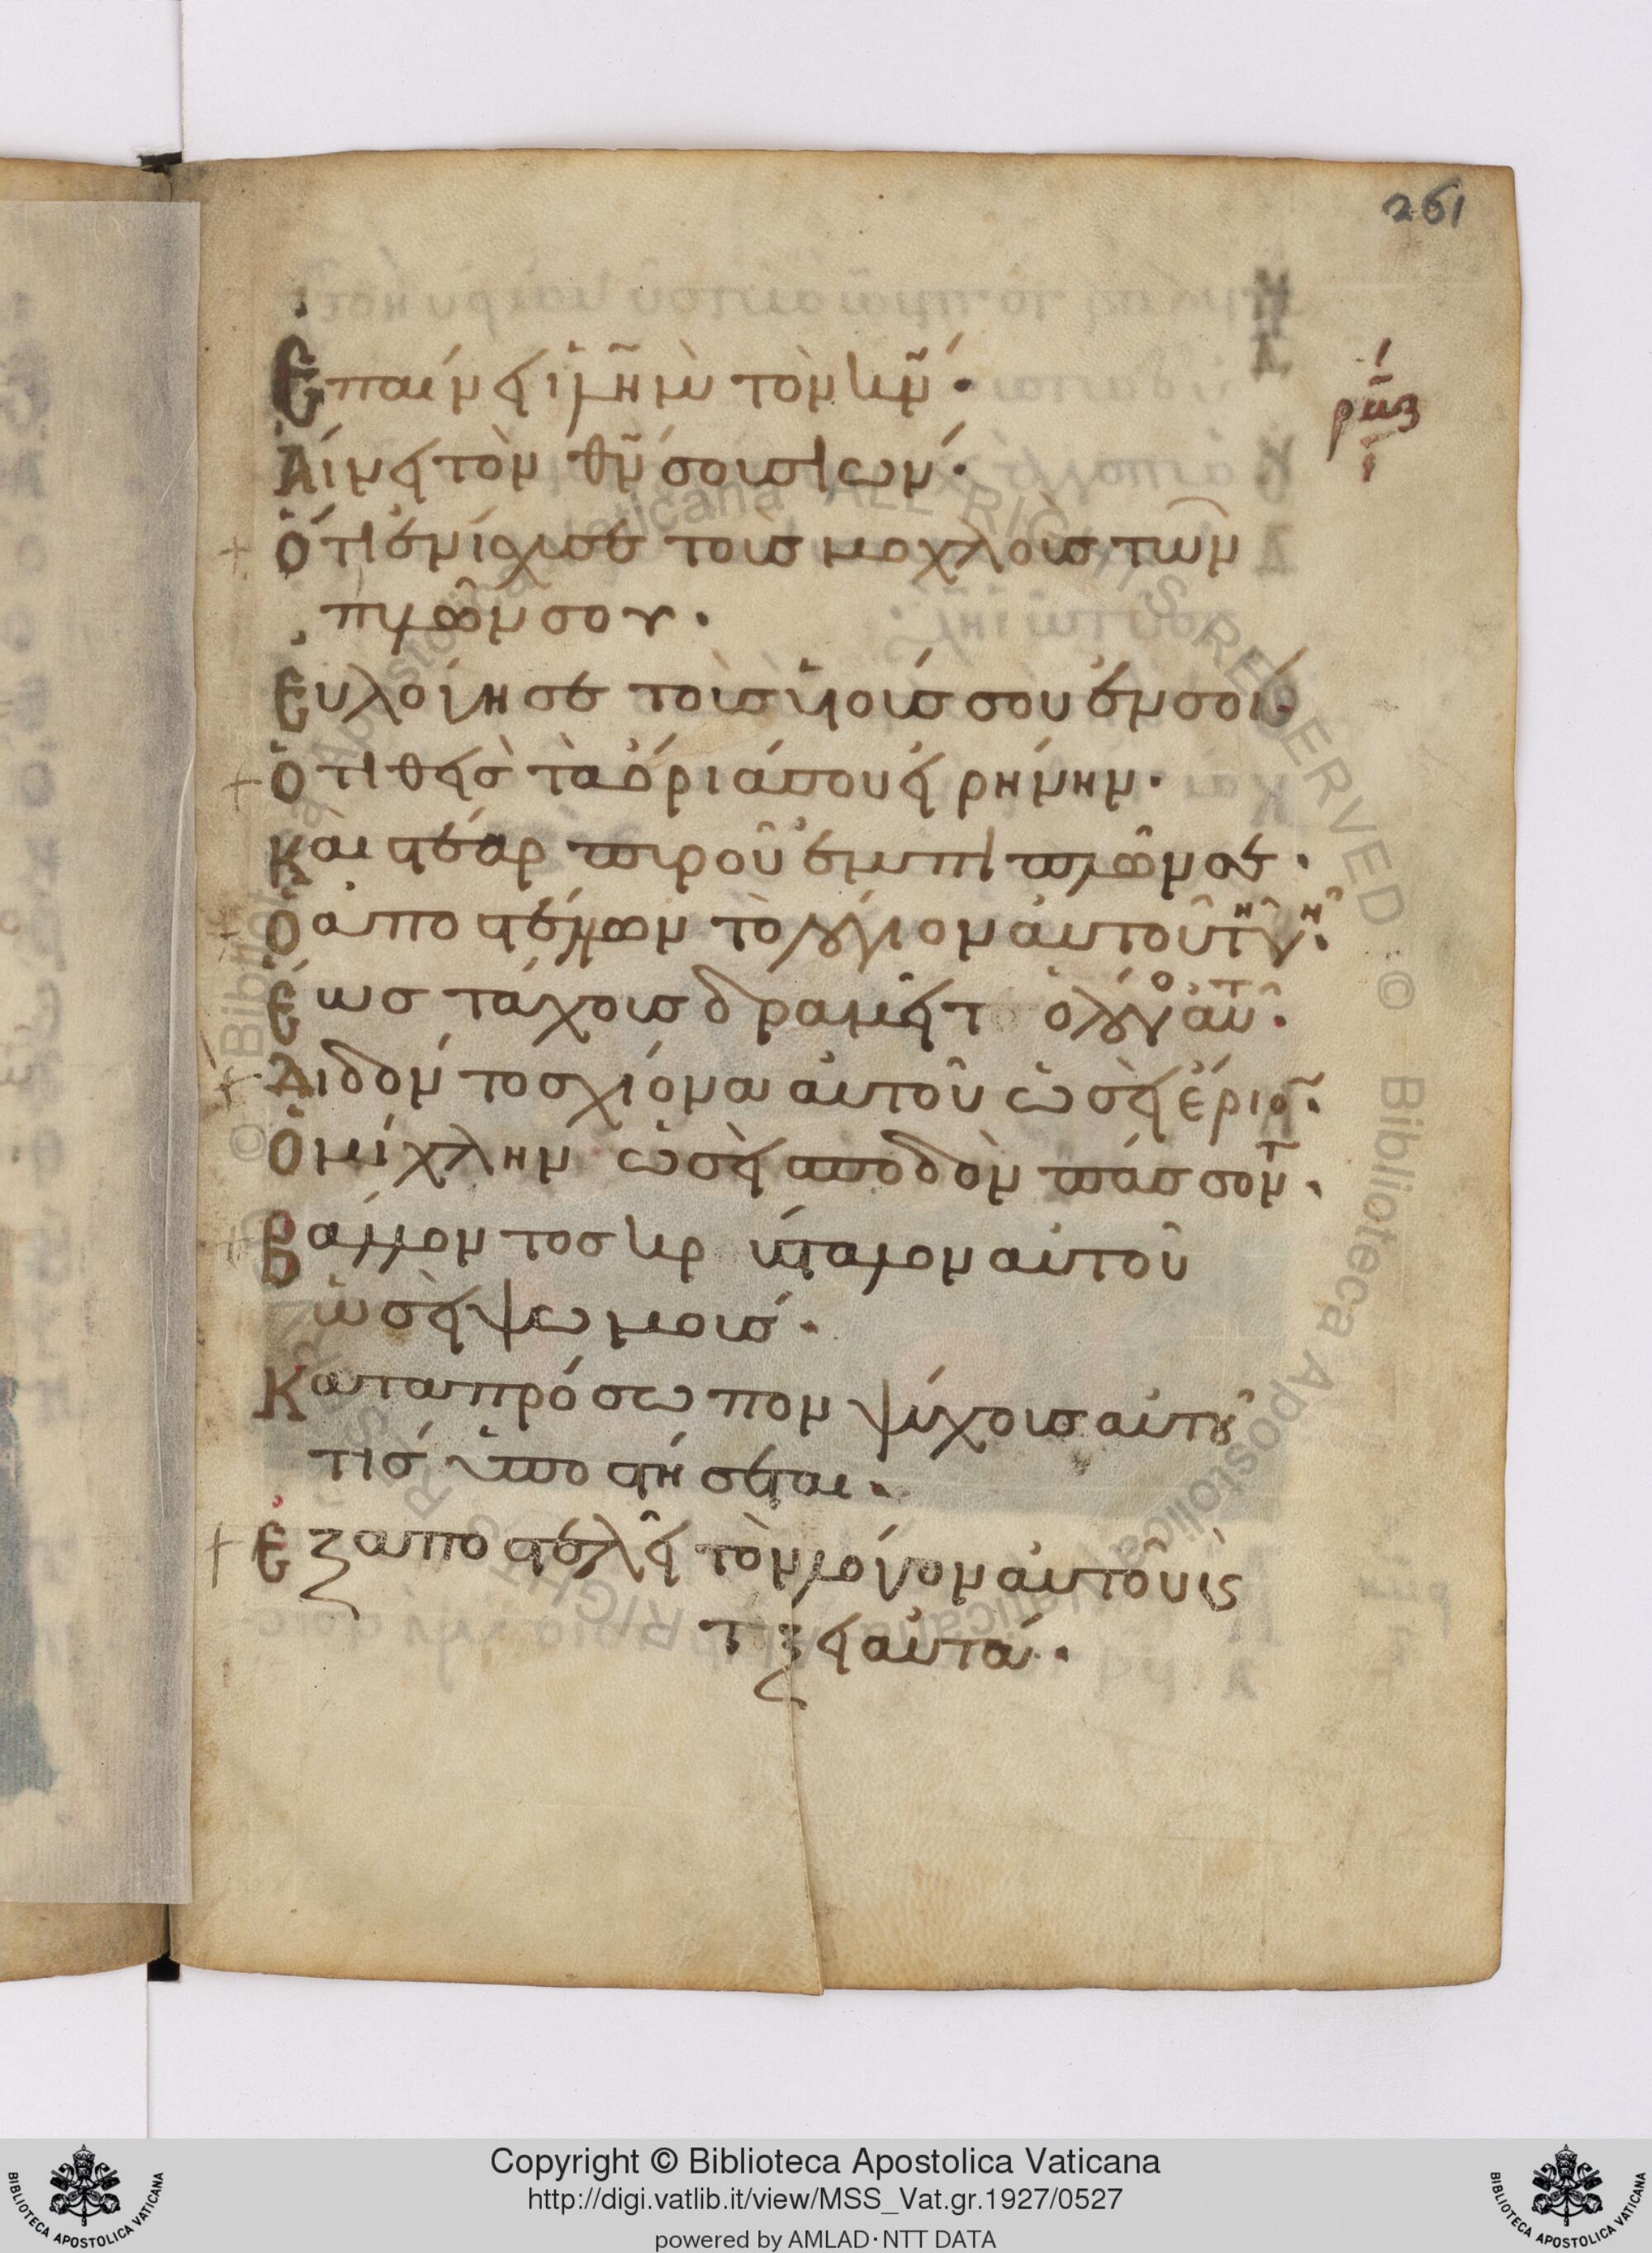 261
Ἐπαίνει ἰ̅λ̅η̅μ̅ τὸν κ̅ν̅·
ρμζ
Αἴνει τὸν θ̅ν̅ σου σιών·
Ὅτι ἐνίσχυσε τοὺσ μοχλοὺσ τῶν
πυλῶν σου·
Εὐλόγησε τοὺσ υἱούσ σου ἐν σοί·
Ὁ τιθεὶσ τὰ ὅριά σου εἰρήνην·
καὶ στέαρ πυροῦ ἐμπιπλῶν σε·
Ὁ ἀποστέλλων τὸ λόγιον αὐτοῦ τῆ γῆ·
Ἕωσ τάχουσ δραμεῖτ ὁ λόγο αὐτ·
Διδόντοσ χιόνα αὐτοῦ ὡσεὶ ἔριον·
Ὁμίχλην ὡσεὶ σποδὸν πάσσοντ·
Βάλλοντοσ κρύσταλλον αὐτοῦ
ὡσεὶ ψωμούσ·
Κατὰ πρόσωπον ψύχουσ αὐτοῦ
τίσ ὑποστήσεται·
Ἐξαποστελεῖ τὸν λόγον αὐτοῦ κς
τήξει αὐτά·
Copyright © Biblioteca Apostolica Vaticana
http://digi.vatlib.it/view/MSS_Vat.gr.1927/0527
powered by AMLAD·NTT DATA
BIBLIOTECA APOSTOLICA VATICANA
BIBLIOTECA APOSTOLICA VATICANA